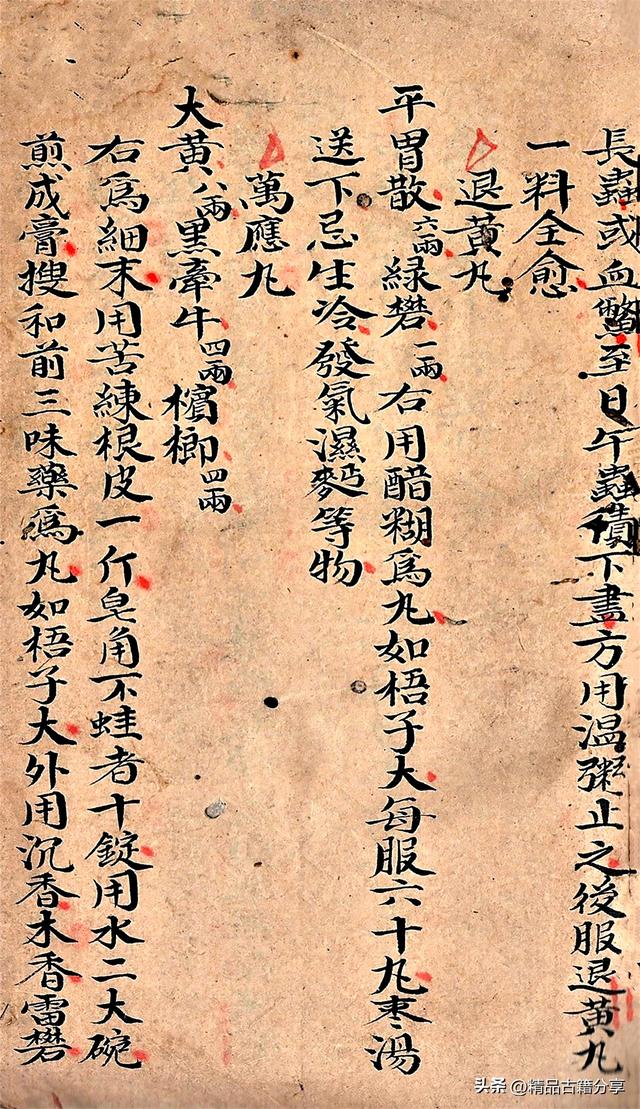 長蟲或血鱉至日午蟲積下盡方用溫粥止之後服退黄丸
一料全愈
退黄丸
平胃散六兩綠礬一兩右用醋糊爲丸如梧子大每服六十丸枣湯
送下忌生冷發氣濕麫等物
萬應丸
大黄八兩黒牽牛四兩檳榔四兩
右爲細末用苦練根皮一斤皂角不蛀者十錠用水二大碗
煎成膏搜和前三味藥爲丸如梧子大外用沉香木香雷礬
头条 @精品古籍分享